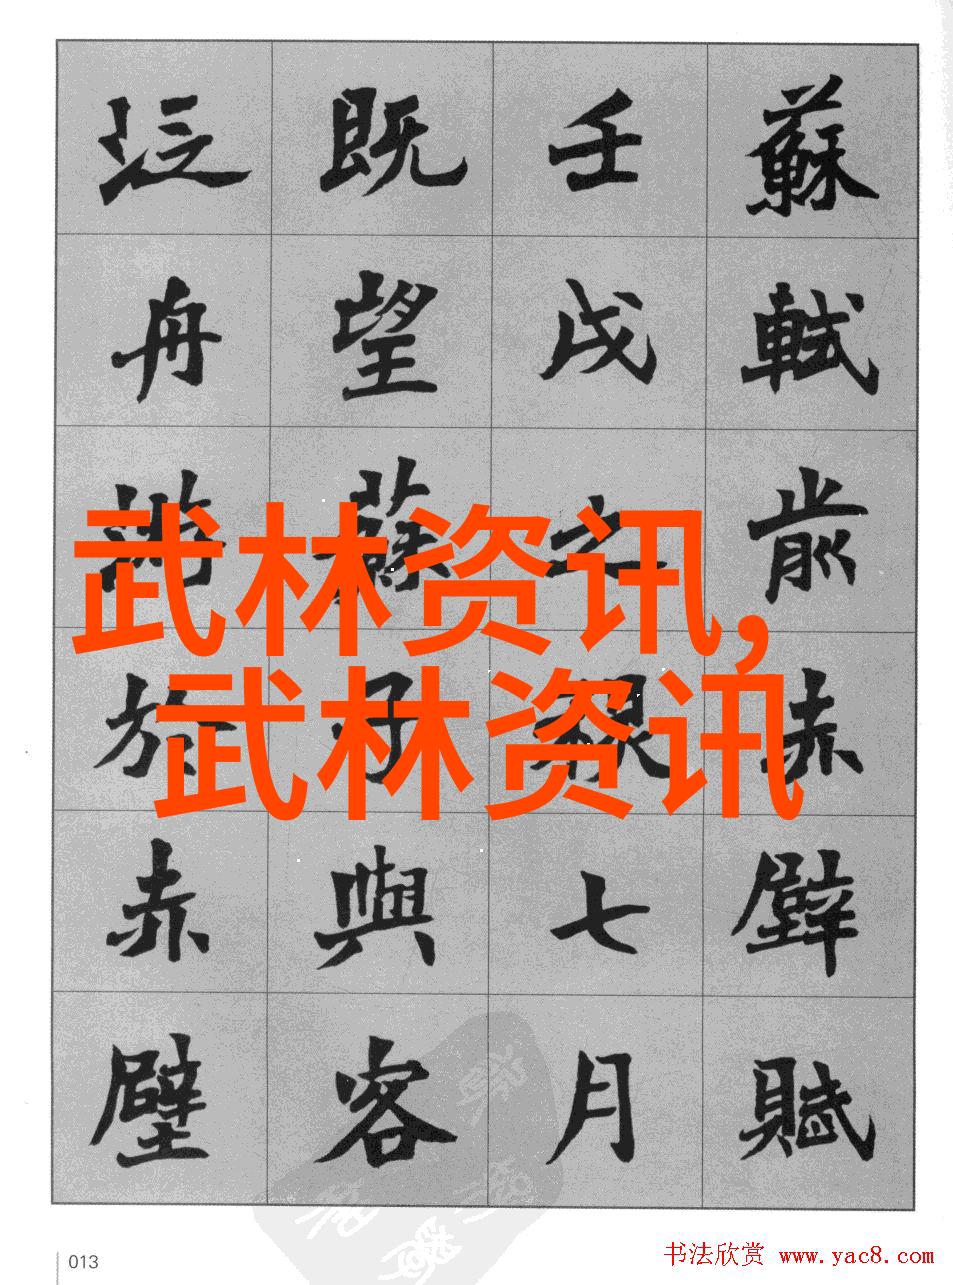 蘇軾前赤壁賦
壬戌之七月
既望蘇子與客
泛舟游於赤壁
武林资讯,
武林资讯
013
书法欣赏 www.yac8.com